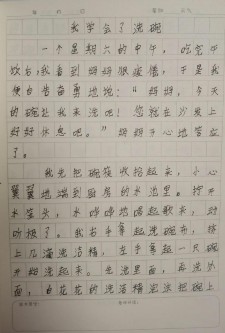 我学会了洗碗
一个星期六的中午，吃完午
饭后，我看到妈妈很疲惫，于是我
便自告奋勇地说：“妈妈，今天
的碗让我来洗吧！您就在沙发上
好好休息吧。”妈妈开心地答应
了。
我先把碗筷收拾起来，小心
翼翼地端到厨房的水池里。拧开
水笼头，水哗哗地唱起歌来，好
听极了。我右手拿起洗碗布，挤
上几滴洗洁精，左手拿一只碗
开始洗起来。先洗里面，再洗外
面，白花花的洗洁精泡沫把碗上